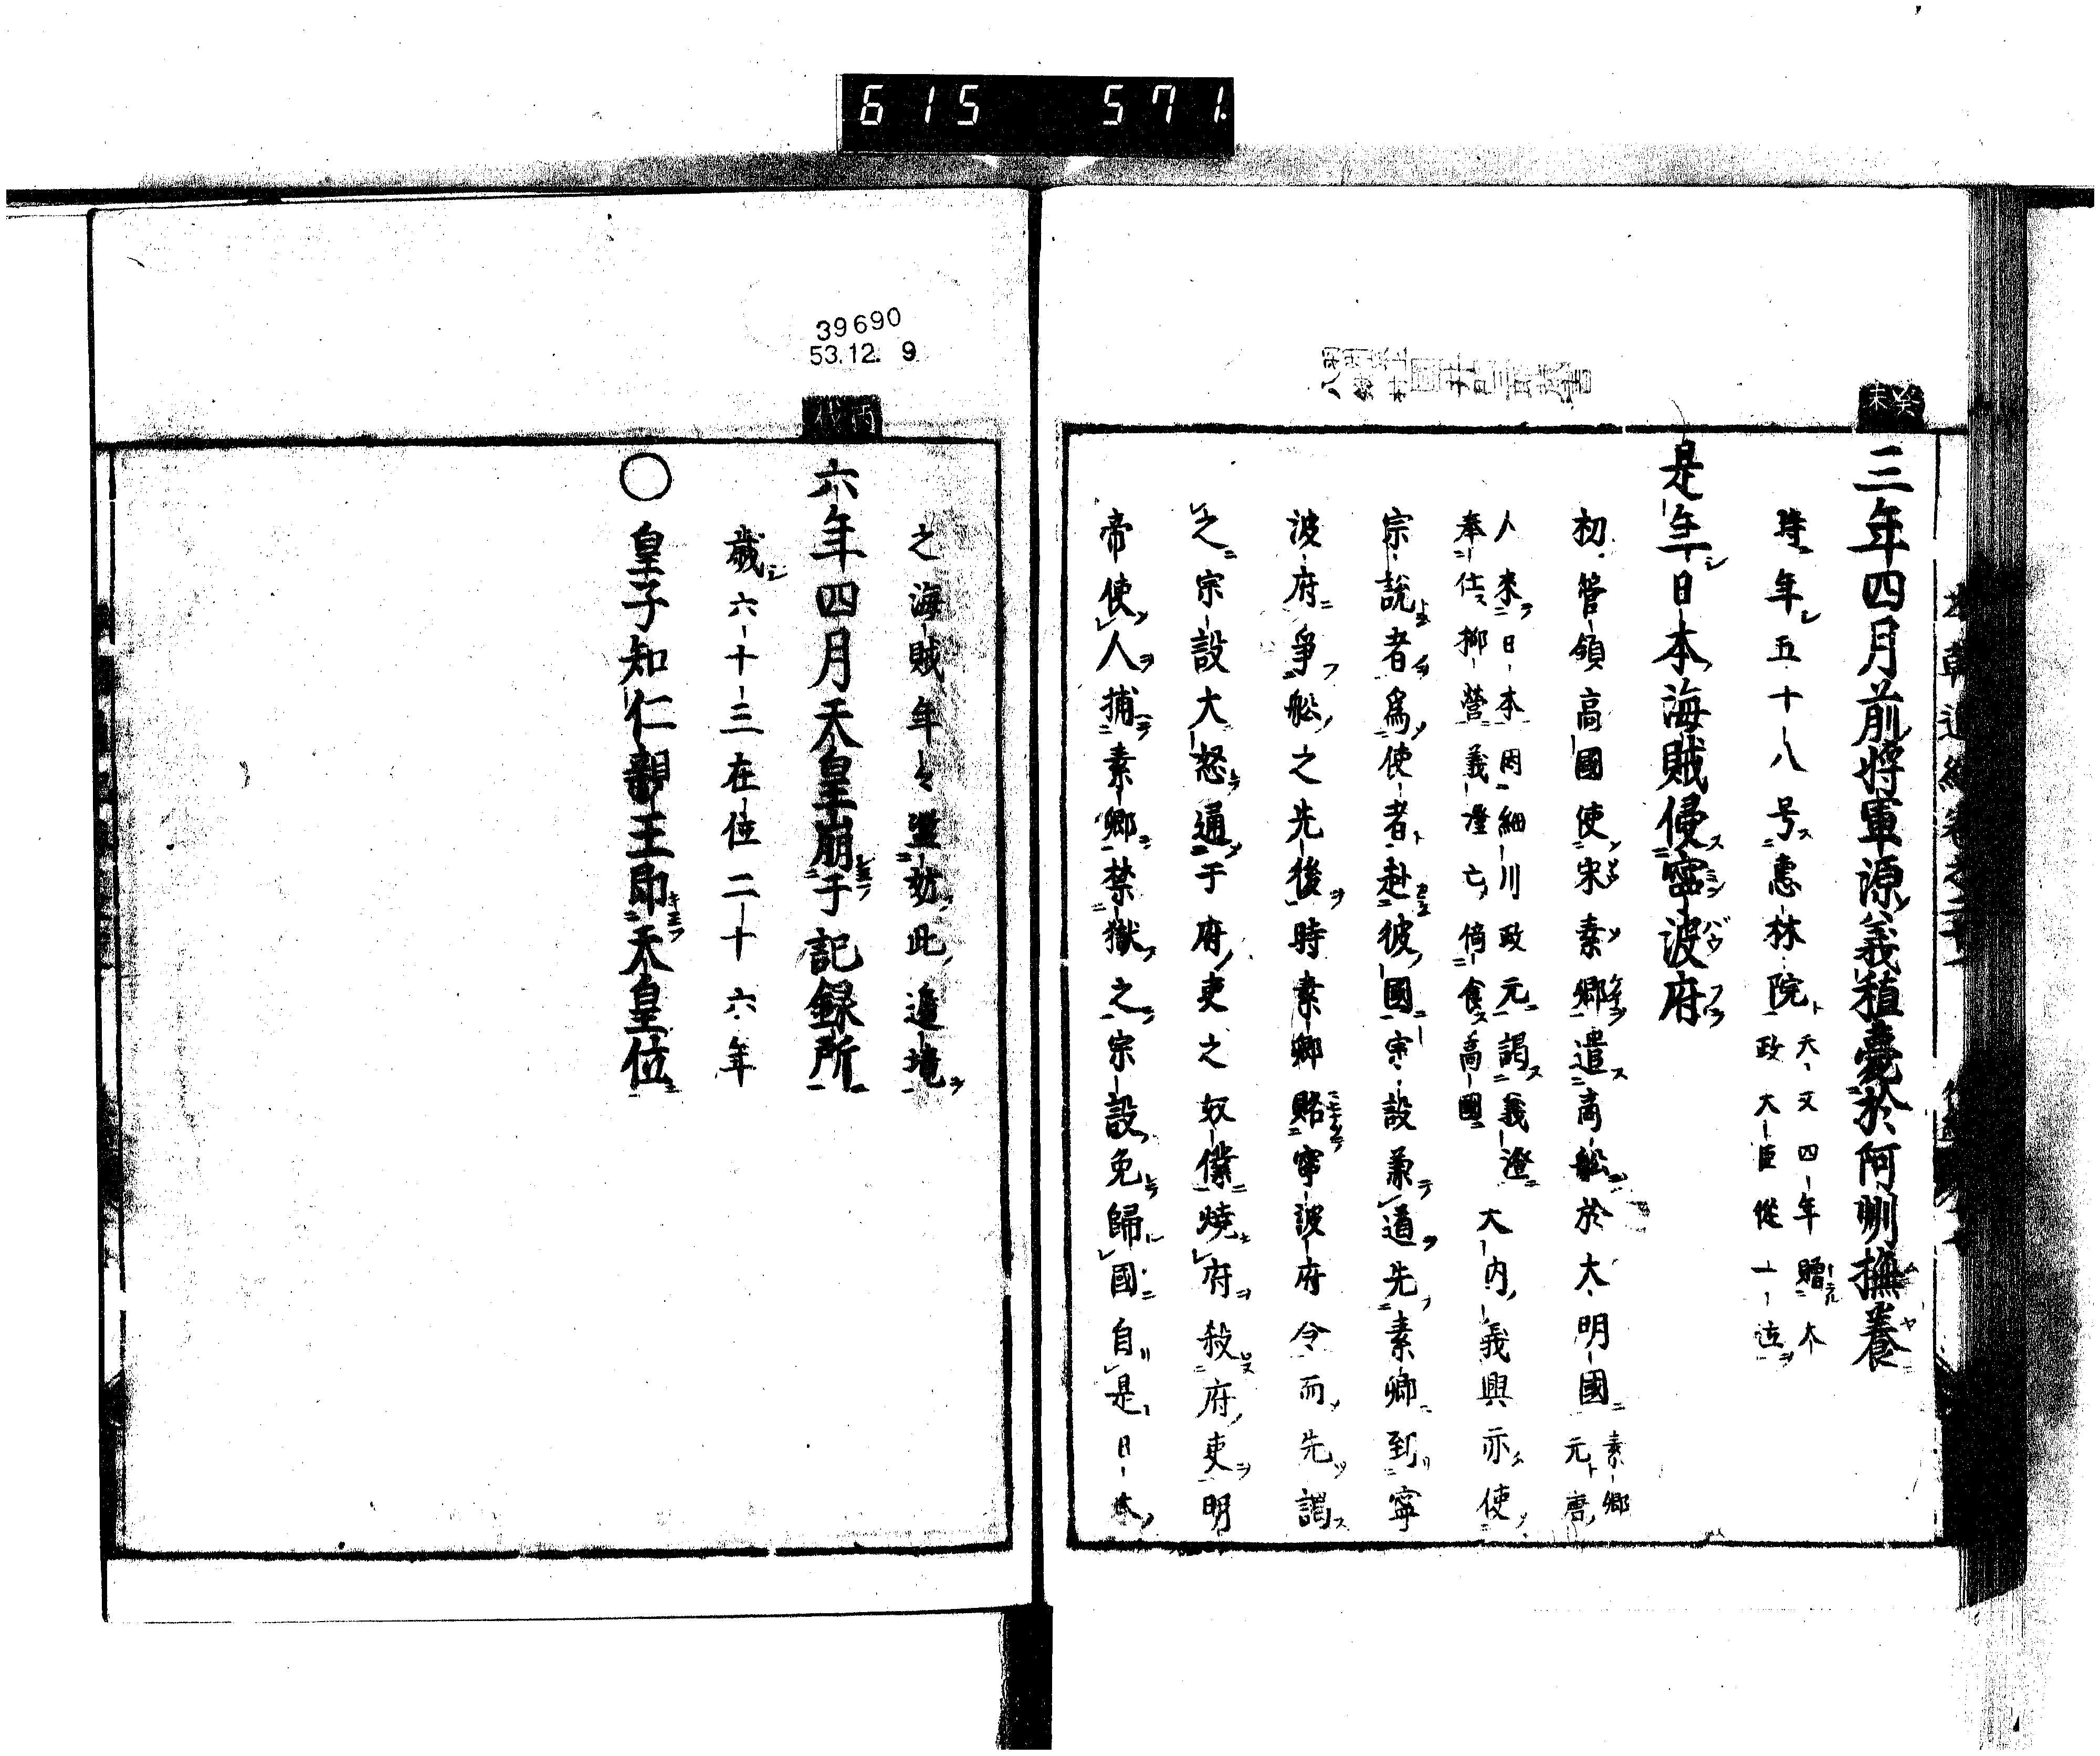 615 571.
癸未
三年四月前將軍源義稙薨於阿州撫養
時年五十八号惠林院天文四年贈太
政大臣從一位
是年日本海賊侵寧波府
初管領高國使宋素卿遣商舩於大明國素卿元唐
人來日本因細川政元謁義澄
奉仕柳營義澄亡倚食高國大内義興亦使
宗說者爲使者赴彼國宗設兼道先素卿到寧
波府爭舩之先後時素卿賂寧波府令而先謁
之宗設大怒通于府吏之奴僕燒府殺府吏明
帝使人捕素卿禁獄之宗設免歸國自是日本
39690
53.12. 9
之海賊年々盗妨此邊境
丙戌
六年四月天皇崩于記録所
歲六十三在位二十六年
○皇子知仁親王即天皇位